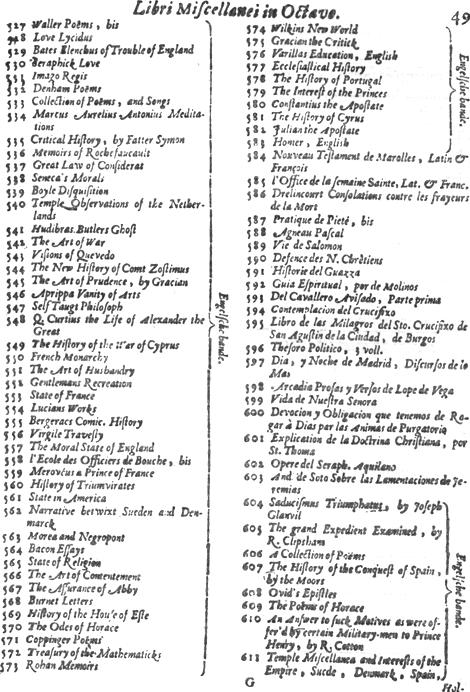 Libri Miscellanei in Octavo.
49
527 Waller Poëms, bis
528 Love Lycidus
529 Bates Elenchus of Trouble of England
530 Seraphick Love
531 Imago Regis
532 Denham Poëms
533 Collection of Poëms, and Songs
534 Marcus Aurelius Antonius Medita-
tions
535 Critical History, by Fatter Symon
536 Memoirs of Rochefaucault
537 Great Law of Considerat
538 Seneca's Morals
539 Boyle Disquisition
540 Temple Observations of the Nether-
lands
541 Hudibras Butlers Ghost
542 The Art of War
543 Visions of Quevedo
544 The New History of Comt Zostimus
545 The Art of Prudence, by Gracian
546 Agrippa Vanity of Arts
547 Self Taugt Philosoph
548 Q. Curtius the Life of Alexander the
Great
549 The History of the War of Cyprus
550 French Monarchy
551 The Art of Husbandry
552 Gentlemans Recreation
553 State of France
554 Lucians Works
555 Bergeracs Comic. History
556 Virgile Travesty
557 The Moral State of England
558 l'Ecole des Officiers de Bouche, bis
559 Merovéus a Prince of France
560 History of Triumvirates
561 State in America
562 Narrative betwixt Sueden and Den-
marck
563 Morea and Negropont
564 Bacon Essays
565 State of Religion
566 The Art of Contentement
567 The Assurance of Abby
568 Burnet Letters
569 History of the House of Este
570 The Odes of Horace
571 Coppinger Poëms
572 Treasury of the Mathematicks
573 Rohan Memoirs
Engelsche bande.
574 Wilkins New World
575 Gracian the Critick
576 Varillas Education, English
577 Ecclesiastical History
578 The History of Portugal
579 The Interest of the Princes
580 Constantius the Apostate
581 The History of Cyrus
582 Julian the Apostate
583 Homer, English
Engelsche bande.
584 Nouveau Testament de Marolles, Latin &
François
585 l'Office de la semaine Sainte, Lat. & Franc.
586 Drelincourt Consolations contre les frayeurs
de la Mort
587 Pratique de Pieté, bis
588 Agneau Pascal
589 Vie de Salomon
590 Defence des N. Chrêtiens
591 Historie del Guazza
592 Guia Espiritual, por de Molinos
593 Del Cavallero Avisado, Parte prima
594 Contemplacion del Crucifixo
595 Libro de las Milagros del Sto. Crucifixo de
San Agustin de la Ciudad, de Burgos
596 Thesoro Politico, 3 voll.
597 Dia, y Noche de Madrid, Discursos de lo
Mas
598 Arcadia Prosas y Versos de Lope de Vega
599 Vida de Nuestra Senora
600 Devocion y Obligacion que tenemos de Ro-
gar à Dias par las Animas de Purgatorio
601 Explication de la Doctrina Christiana, por
St. Thoma
602 Opere del Seraph. Aquilano
603 And. de Soto Sobre las Lamentaciones de Je-
remias
604 Saducismus Triumphatus, by Joseph
Glanvil
605 The grand Expedient Examined, by
R. Clipsham
606 A Collection of Poëms
607 The History of the Conquest of Spain,
by the Moors
608 Ovid's Epistles
609 The Poëms of Horace
610 An Answer to such Motives as were of-
fer'd by certain Military-men to Prince
Henry, by R. Cotton
611 Temple Miscellanea and Interests of the
Empire, Suede, Denmark, Spain,
Engelsche bande.
G
Hol-